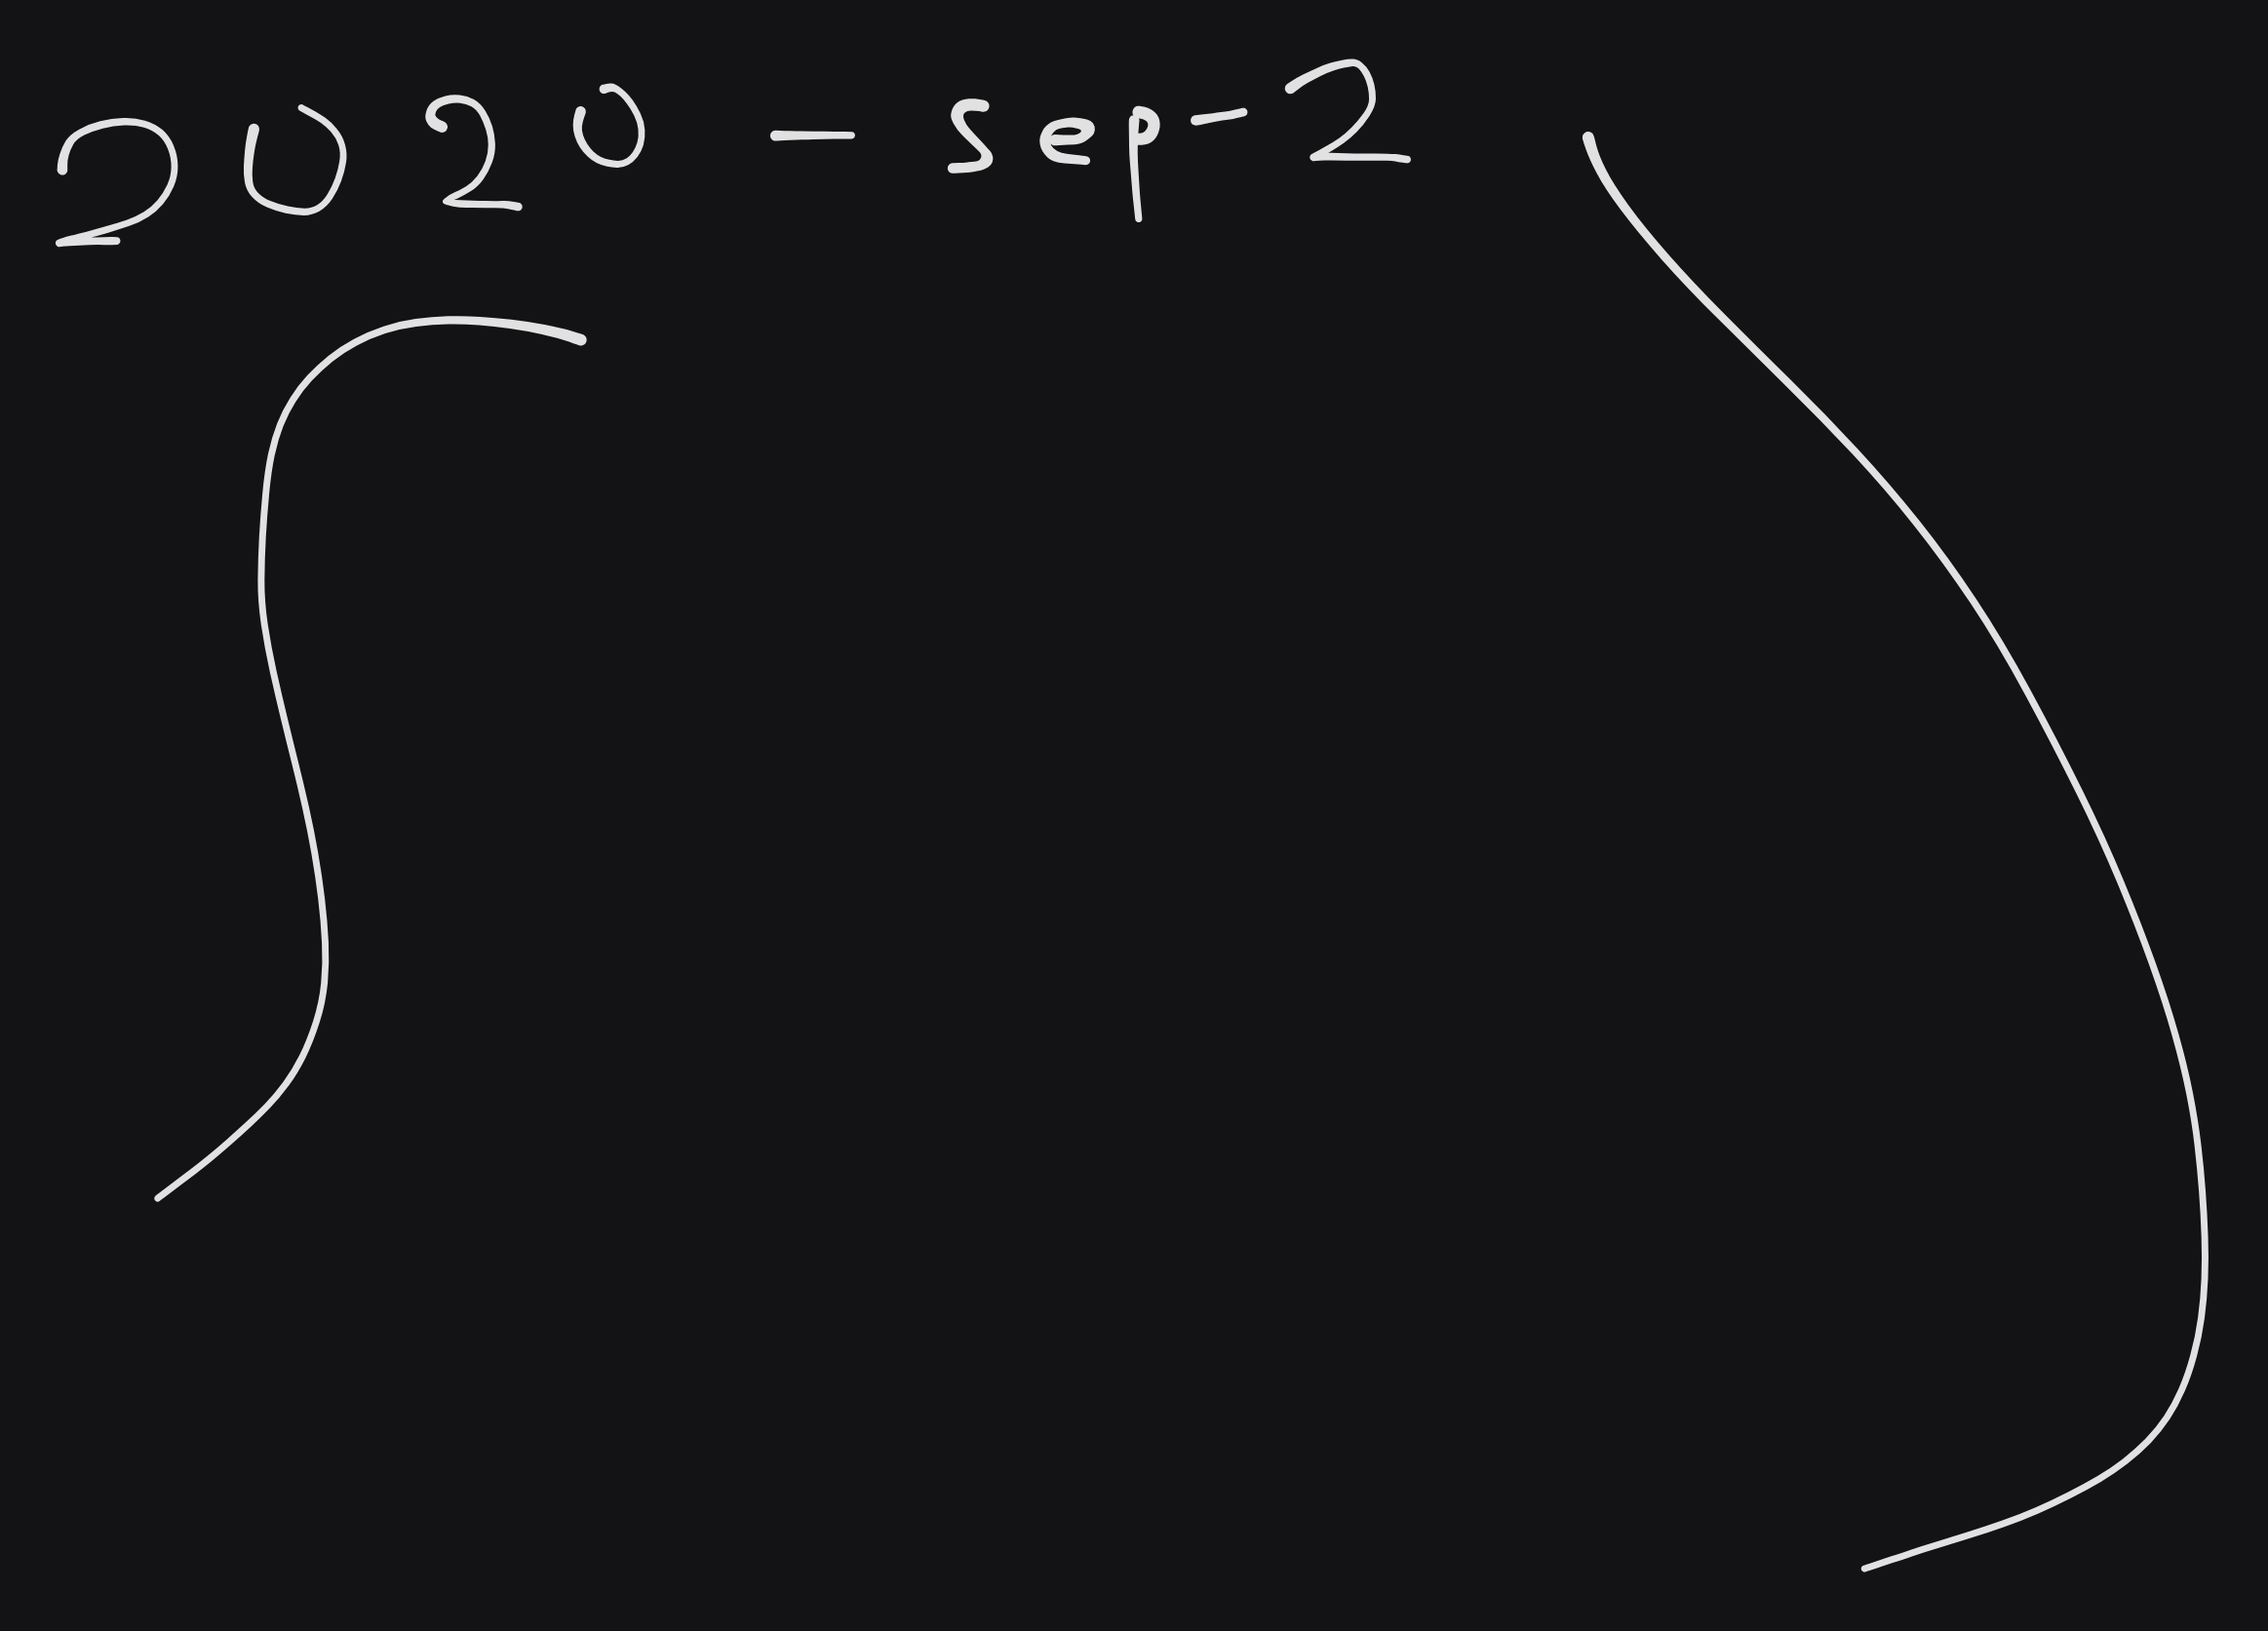 2020 - sep-2